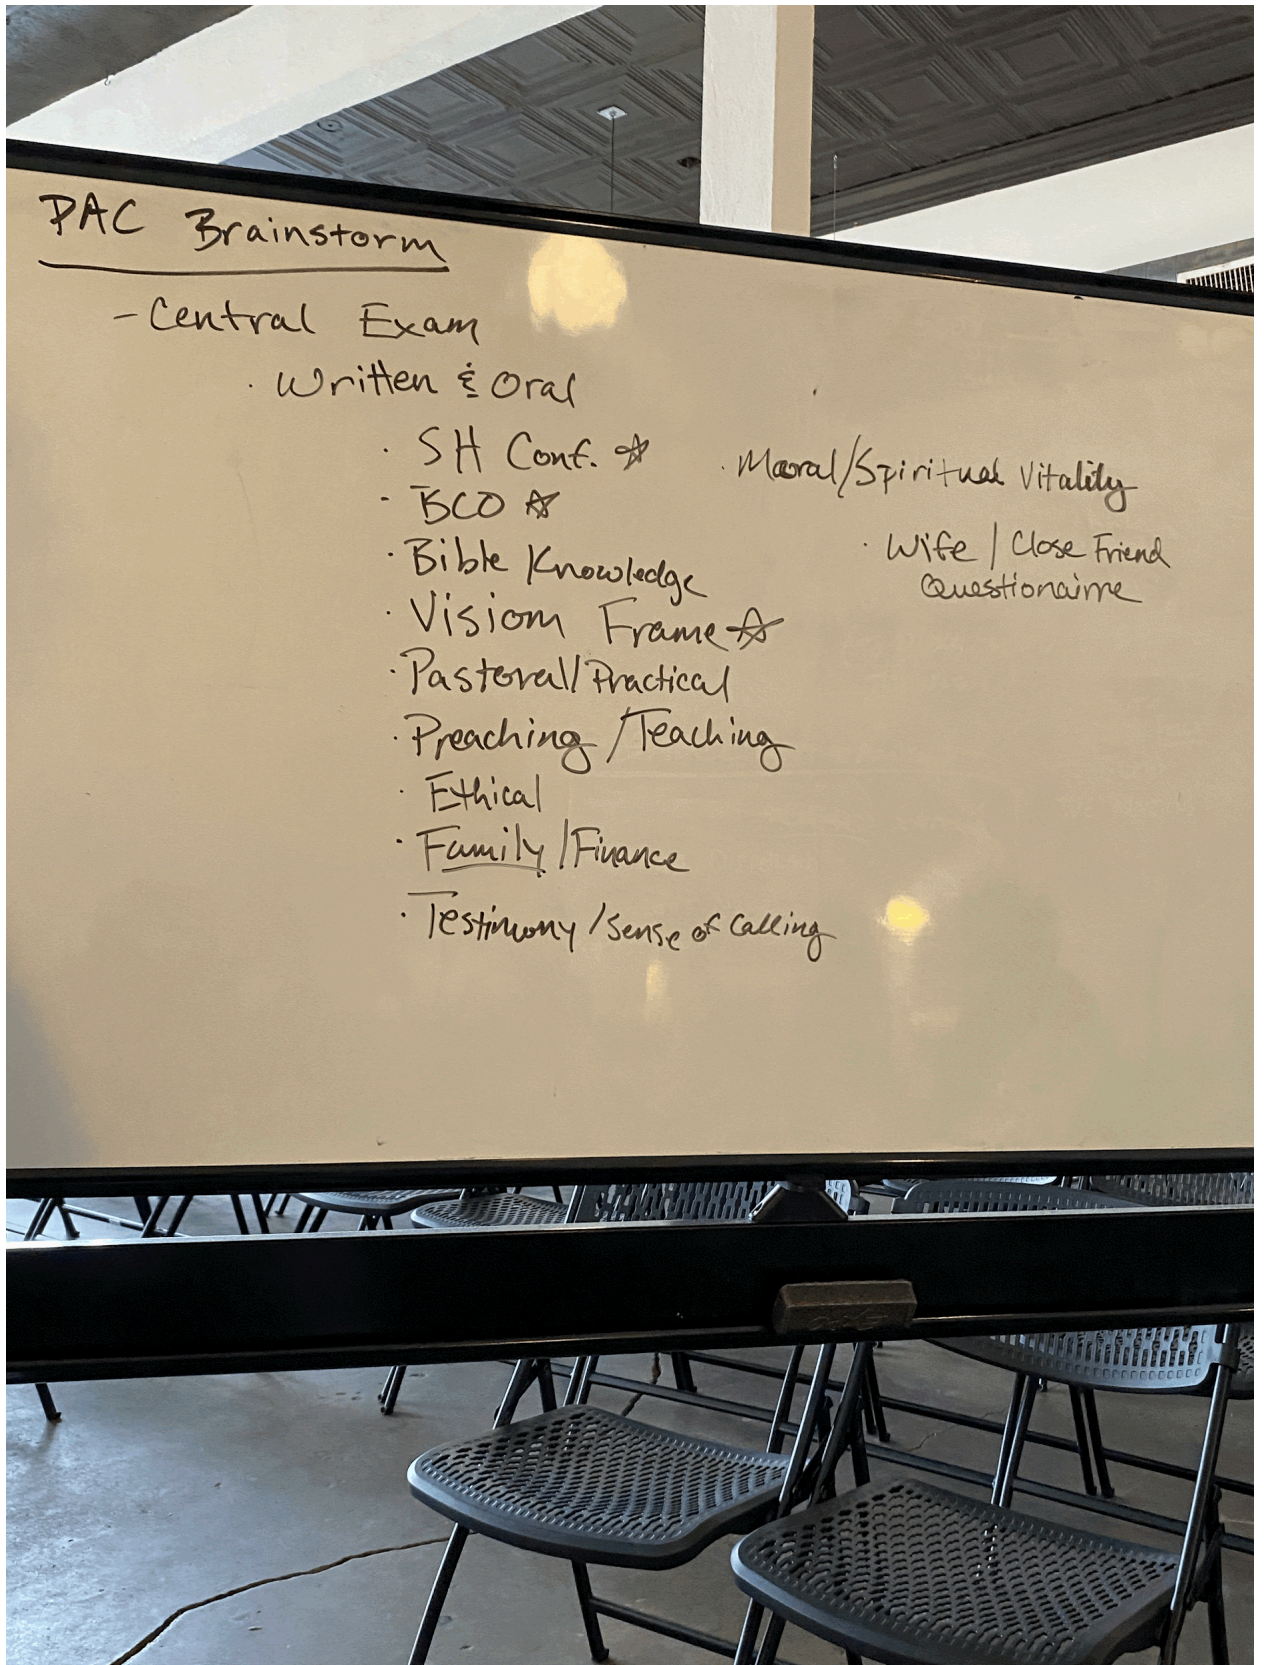 PAC Brainstorm
- Central Exam
· Written & Oral
· SH Conf. ☆
· BCO ☆
· Bible Knowledge
· Vision Frame ☆
· Pastoral/Practical
· Preaching/Teaching
· Ethical
· Family/Finance
· Testimony/Sense of Calling
· Moral/Spiritual Vitality
· Wife/Close Friend
Questionairre